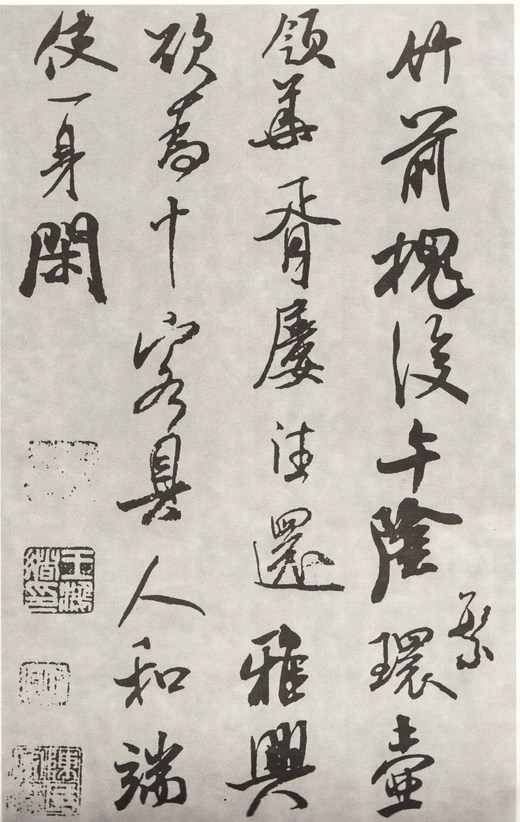 竹前槐後午陰繁環壺
領華胥屢往還雅興
欲為十客具人和端
使一身閑
王鴻緒印